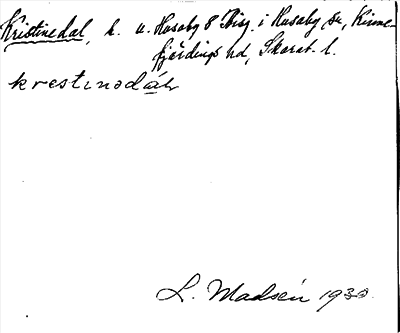 Kristinedal, h. u. Husaby 8 Bisg. i Husaby sn, Kinne-
fjärdings hd, Skarab. l.
krestinodál
L. Madsén 1930.